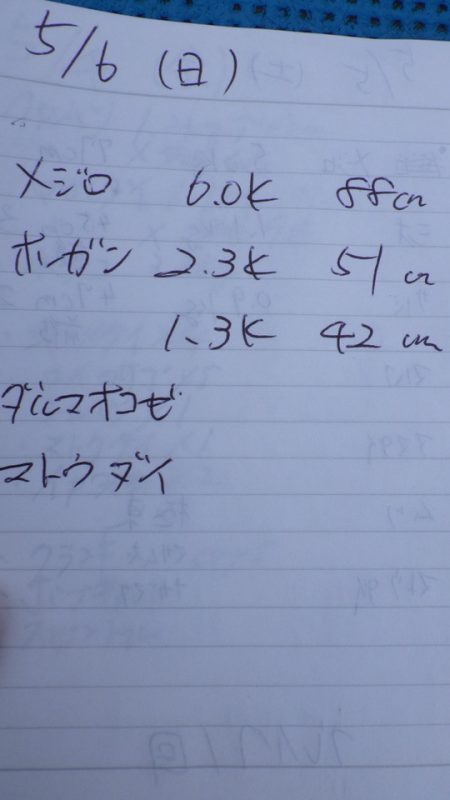 5/6 (日)
メジロ 6.0K 88cm
ボッガン 2.3K 51cm
1.3K 42cm
ダルマオコゼ
マトウダイ